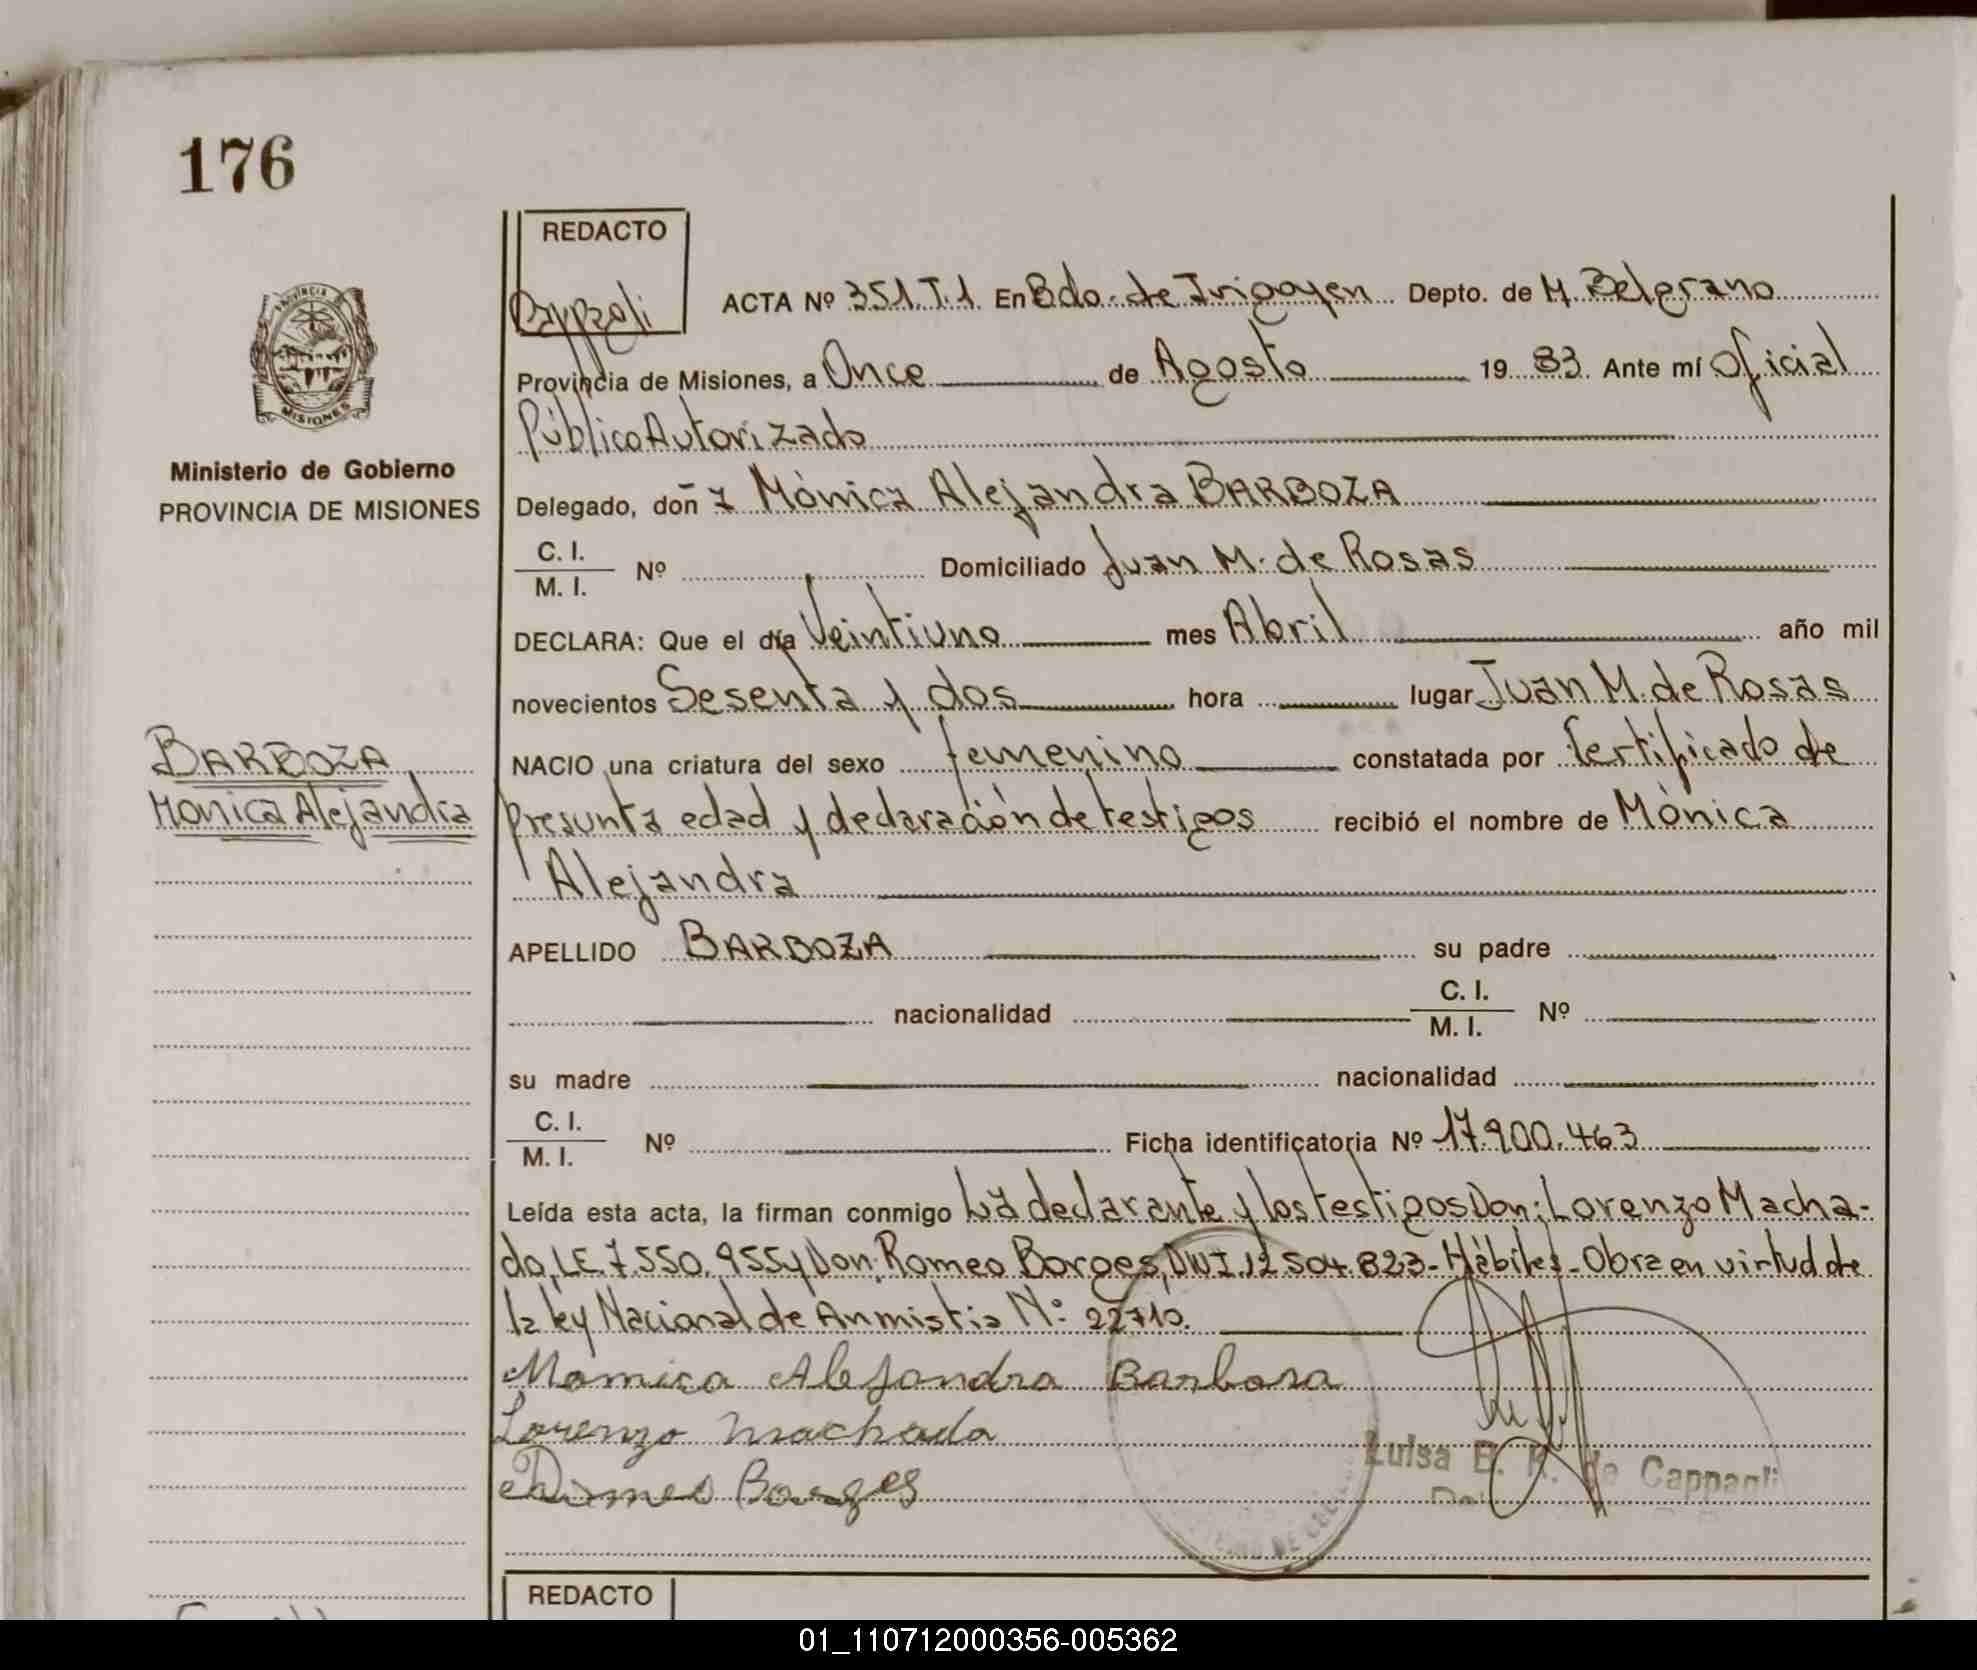 176
REDACTO
PROVINCIA DE
MISIONES
ACTA Nº 351.T.1 En Bdo. de Irigoyen Depto. de M. Belgrano
Provincia de Misiones, a Once de Agosto 1983. Ante mí Oficial
Público Autorizado
Ministerio de Gobierno
PROVINCIA DE MISIONES
Delegado, doña Mónica Alejandra BARBOZA
C. I.
M. I. Nº Domiciliado Juan M. de Rosas
DECLARA: Que el día Veintiuno mes Abril año mil
novecientos Sesenta y dos hora lugar Juan M. de Rosas
BARBOZA
Monica Alejandra
NACIO una criatura del sexo femenino constatada por Certificado de
presunta edad y declaración de testigos recibió el nombre de Mónica
Alejandra
APELLIDO BARBOZA su padre
nacionalidad C. I.
M. I. Nº
su madre nacionalidad
C. I.
M. I. Nº Ficha identificatoria Nº 17.900.463
Leída esta acta, la firman conmigo La declarante y los testigos Don: Lorenzo Macha-
do, LE. 7.550.955 y Don: Romeo Borges, DNI.12.504.823- Hábiles- Obra en virtud de
la ley Nacional de Anmistia Nº 22710.
Monica Alejandra Barbosa
Lorenzo Machado
Romeo Borges
Luisa B. K. de Cappagli
REDACTO
01_110712000356-005362